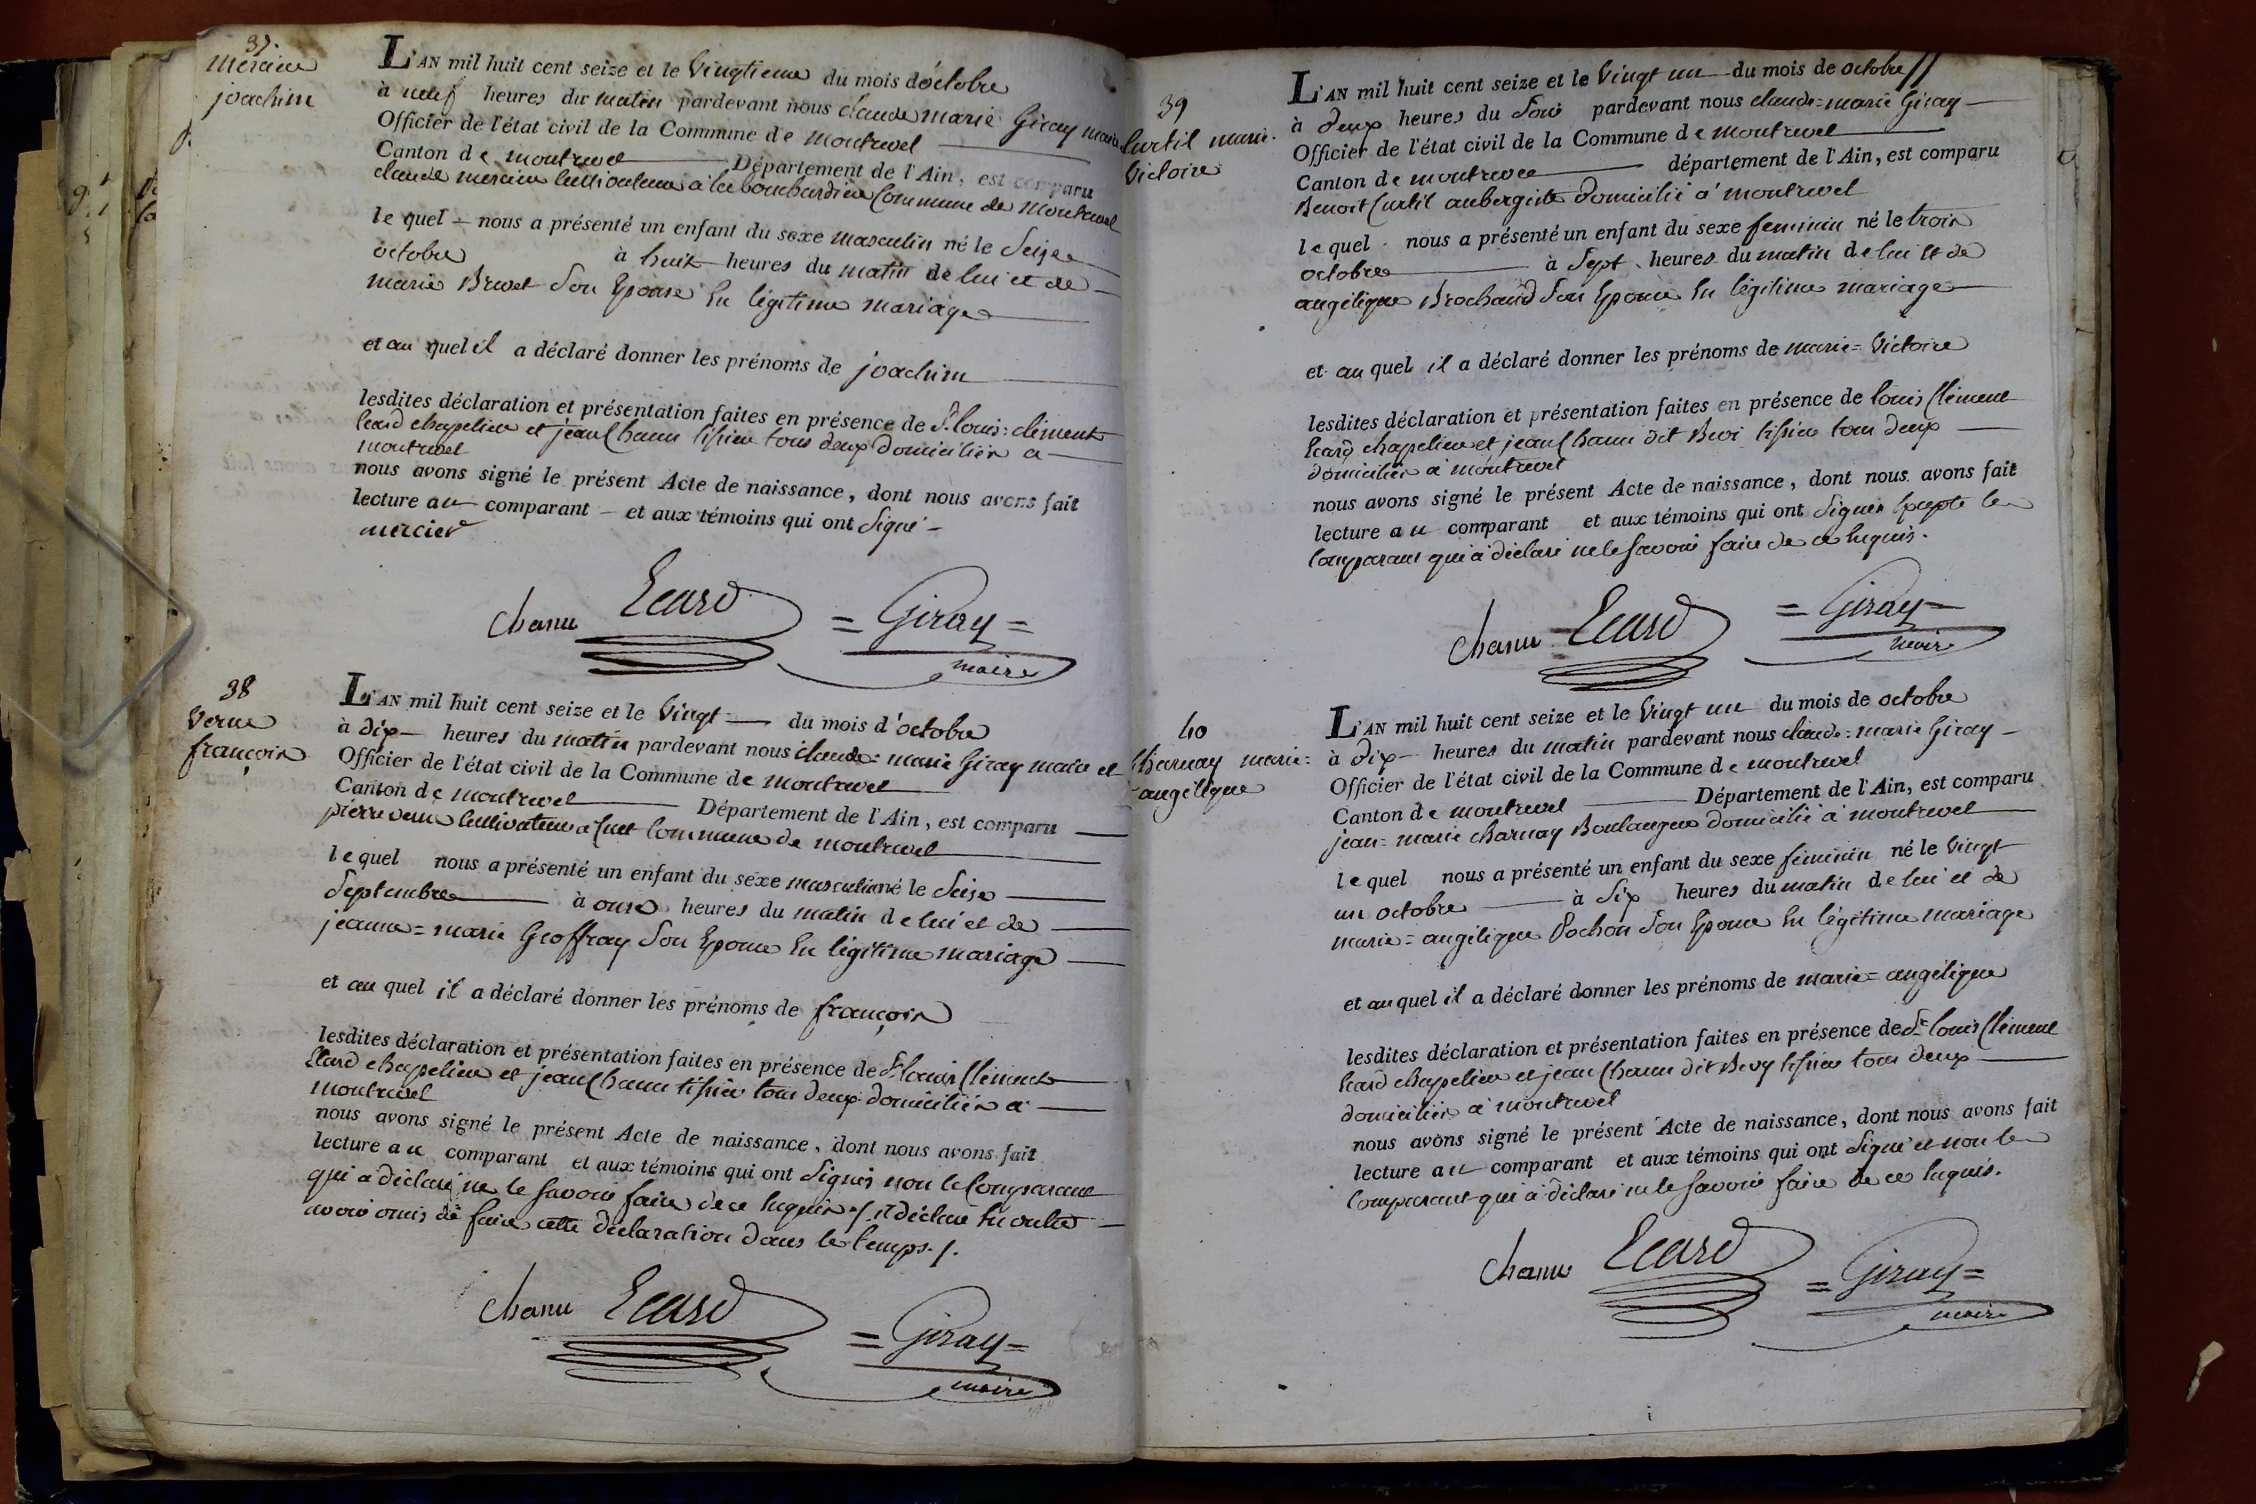 37.
mercier
joachim
L'AN mil huit cent seize et le Vingtieme du mois d'octobre
à neuf heures du matin pardevant nous claude marie Giray maire
Officier de l'état civil de la Commune de montrevel
Canton de montrevel Département de l'Ain, est comparu
claude mercier Cultivateur à la bombardiere Commune de Montrevel
le quel nous a présenté un enfant du sexe masculin né le Seize
octobre à huit heures du matin de lui et de
marie Brevet Son Epouse En légitime mariage
et au quel il a déclaré donner les prénoms de joachim
lesdites déclaration et présentation faites en présence de Sr. louis=clément
Ecard chapelier et jean Chanu tissier tous deux domiciliés a
montrevel
nous avons signé le présent Acte de naissance, dont nous avons fait
lecture au comparant et aux témoins qui ont Signé
mercier
chanu Ecard = Giray =
maire
38
Verne
françois
L'AN mil huit cent seize et le Vingt du mois d'octobre
à dix heures du matin pardevant nous claude=marie Giray maire et
Officier de l'état civil de la Commune de montrevel
Canton de montrevel Département de l'Ain, est comparu
pierre verne Cultivateur a Cuet Commune de montrevel
le quel nous a présenté un enfant du sexe masculin né le Seize
Septembre à onze heures du matin de lui et de
jeanne=marie Geoffray Son Epouse En légitime mariage
et au quel il a déclaré donner les prénoms de françois
lesdites déclaration et présentation faites en présence de Sr. louis Clément
Ecard chapelier et jean Chanu tissier tous deux domiciliés a
montrevel
nous avons signé le présent Acte de naissance, dont nous avons fait
lecture au comparant et aux témoins qui ont Signés non le Comparant
qui a déclaré ne le Savoir faire de ce Enquis ./. il déclare En outre
avoir omis de faire cette déclaration dans le temps ./.
chanu Ecard = Giray =
maire
39
Curtil marie=
Victoire
L'AN mil huit cent seize et le Vingt un du mois de octobre
à deux heures du Soir pardevant nous claude=marie Giray
Officier de l'état civil de la Commune de montrevel
Canton de montrevel département de l'Ain, est comparu
Benoit Curtil aubergiste domicilié à montrevel
le quel nous a présenté un enfant du sexe feminin né le trois
octobre à Sept heures du matin de lui et de
angélique Brochand Son Epouse En légitime mariage
et au quel il a déclaré donner les prénoms de marie=Victoire
lesdites déclaration et présentation faites en présence de louis Clément
Ecard chapelier et jean Chanu dit Bevi tissier tous deux
domiciliés à montrevel
nous avons signé le présent Acte de naissance, dont nous avons fait
lecture au comparant et aux témoins qui ont Signés Excepté le
Comparant qui a déclaré ne le Savoir faire de ce Enquis.
chanu Ecard = Giray =
maire
40
Charnay marie=
angélique
L'AN mil huit cent seize et le Vingt un du mois de octobre
à dix heures du matin pardevant nous claude=marie Giray
Officier de l'état civil de la Commune de montrevel
Canton de montrevel Département de l'Ain, est comparu
jean=marie charnay Boulanger domicilié à montrevel
le quel nous a présenté un enfant du sexe féminin né le Vingt
un octobre à Six heures du matin de lui et de
marie=angélique Pochon Son Epouse En légitime mariage
et au quel il a déclaré donner les prénoms de marie=angélique
lesdites déclaration et présentation faites en présence de Sr. louis Clément
Ecard chapelier et jean Chanu dit Bevy tissier tous deux
domiciliés à montrevel
nous avons signé le présent Acte de naissance, dont nous avons fait
lecture au comparant et aux témoins qui ont Signé et non le
Comparant qui a déclaré ne le Savoir faire de ce Enquis.
chanu Ecard = Giray =
maire